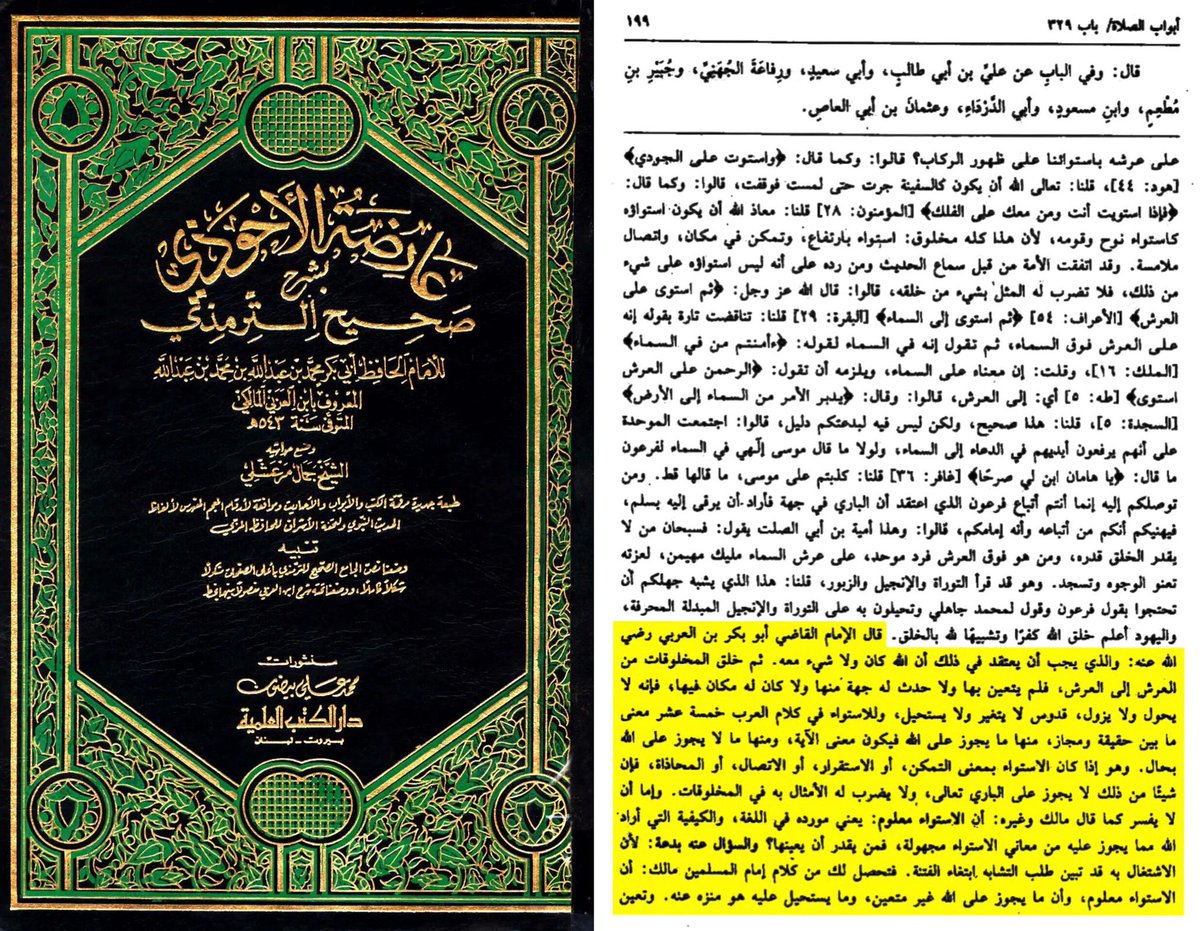 عارضة الأحوذي
بشرح
صحيح الترمذي
للإمام الحافظ أبي بكر محمد بن عبد الله بن محمد بن عبد الله
المعروف بابن العربي المالكي
المتوفى سنة ٥٤٣هـ
وضع حواشيه
الشيخ جمال مرعشلي
طبعة جديدة مرقمة الكتب والأبواب والأحاديث وموافقة لأرقام المعجم المفهرس لألفاظ
الحديث النبوي ولتحفة الأشراف للحافظ المزي
تنبيه
وضعنا نص الجامع الصحيح للترمذي بأعلى الصفحات مشكلاً
شكلاً كاملاً، ووضعنا تحته شرح ابن العربي مفصولاً بينهما بخط
منشورات
محمد علي بيضون
دار الكتب العلمية
بيروت - لبنان
أبواب الصلاة/ باب ٣٢٩
١٩٩
قال: وفي البابِ عن عليِّ بن أبي طالبٍ، وأبي سعيدٍ، ورِفاعَةَ الجُهَنِيِّ، وجُبَيْرِ بنِ
مُطْعِمٍ، وابنِ مسعودٍ، وأبي الدَّرْدَاءِ، وعثمانَ بن أبي العاصِ.
على عرشه باستوائنا على ظهور الركاب؟ قالوا: وكما قال: ﴿واستوت على الجودي﴾
[هود: ٤٤]، قلنا: تعالى الله أن يكون كالسفينة جرت حتى لمست فوقفت، قالوا: وكما قال:
﴿فإذا استويت أنت ومن معك على الفلك﴾ [المؤمنون: ٢٨] قلنا: معاذ الله أن يكون استواؤه
كاستواء نوح وقومه، لأن هذا كله مخلوق: استواء بارتفاع، وتمكن في مكان، واتصال
ملامسة. وقد اتفقت الأمة من قبل سماع الحديث ومن رده على أنه ليس استواؤه على شيء
من ذلك، فلا تضرب له المثل بشيء من خلقه، قالوا: قال الله عز وجل: ﴿ثم استوى على
العرش﴾ [الأعراف: ٥٤] ﴿ثم استوى إلى السماء﴾ [البقرة: ٢٩] قلنا: تناقضت تارة بقوله إنه
على العرش فوق السماء، ثم تقول إنه في السماء لقوله: ﴿ءأمنتم من في السماء﴾
[الملك: ١٦]، وقلت: إن معناه على السماء، ويلزمه أن تقول: ﴿الرحمن على العرش
استوى﴾ [طه: ٥] أي: إلى العرش، قالوا: وقال: ﴿يدبر الأمر من السماء إلى الأرض﴾
[السجدة: ٥]، قلنا: هذا صحيح، ولكن ليس فيه لبدعتكم دليل، قالوا: اجتمعت الموحدة
على أنهم يرفعون أيديهم في الدعاء إلى السماء، ولولا ما قال موسى إلٰهي في السماء لفرعون
ما قال: ﴿يا هامان ابن لي صرحًا﴾ [غافر: ٣٦] قلنا: كذبتم على موسى، ما قالها قط. ومن
توصلكم إليه إنما أنتم أتباع فرعون الذي اعتقد أن الباري في جهة فأراد أن يرقى إليه بسلم،
فيهنيكم أنكم من أتباعه وأنه إمامكم، قالوا: وهذا أمية بن أبي الصلت يقول: فسبحان من لا
يقدر الخلق قدره، ومن هو فوق العرش فرد موحد، على عرش السماء مليك مهيمن، لعزته
تعنو الوجوه وتسجد. وهو قد قرأ التوراة والإنجيل والزبور، قلنا: هذا الذي يشبه جهلكم أن
تحتجوا بقول فرعون وقول لمحمد جاهلي وتحيلون به على التوراة والإنجيل المبدلة المحرفة،
واليهود أعلم خلق الله كفرًا وتشبيهًا لله بالخلق. قال الإمام القاضي أبو بكر بن العربي رضي
الله عنه: والذي يجب أن يعتقد في ذلك أن الله كان ولا شيء معه. ثم خلق المخلوقات من
العرش إلى العرش، فلم يتعين بها ولا حدث له جهة منها ولا كان له مكان فيها، فإنه لا
يحول ولا يزول، قدوس لا يتغير ولا يستحيل، وللاستواء في كلام العرب خمسة عشر معنى
ما بين حقيقة ومجاز، منها ما يجوز على الله فيكون معنى الآية، ومنها ما لا يجوز على الله
بحال. وهو إذا كان الاستواء بمعنى التمكن، أو الاستقرار، أو الاتصال، أو المحاذاة، فإن
شيئًا من ذلك لا يجوز على الباري تعالى، ولا يضرب له الأمثال به في المخلوقات. وإما أن
لا يفسر كما قال مالك وغيره: أن الاستواء معلوم: يعني مورده في اللغة، والكيفية التي أراد
الله مما يجوز عليه من معاني الاستواء مجهولة، فمن يقدر أن يعينها؟ والسؤال عنه بدعة: لأن
الاشتغال به قد تبين طلب التشابه ابتغاء الفتنة. فتحصل لك من كلام إمام المسلمين مالك: أن
الاستواء معلوم، وأن ما يجوز على الله غير متعين، وما يستحيل عليه هو منزه عنه. وتعين